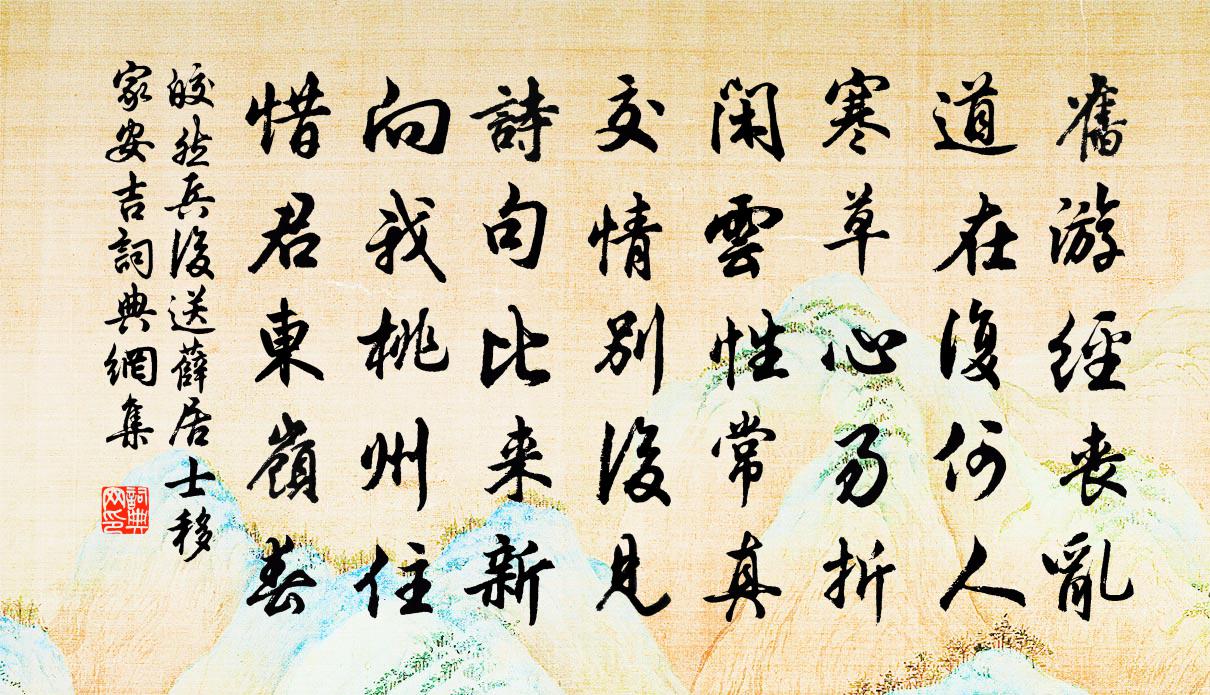 舊游經喪亂
道在復何人
寒草心易折
閑雲性常真
交情別後見
詩句比来新
向我桃州住
惜君東嶺春
皎然兵後送薛居士移
家安吉詞典網集
詞典网印